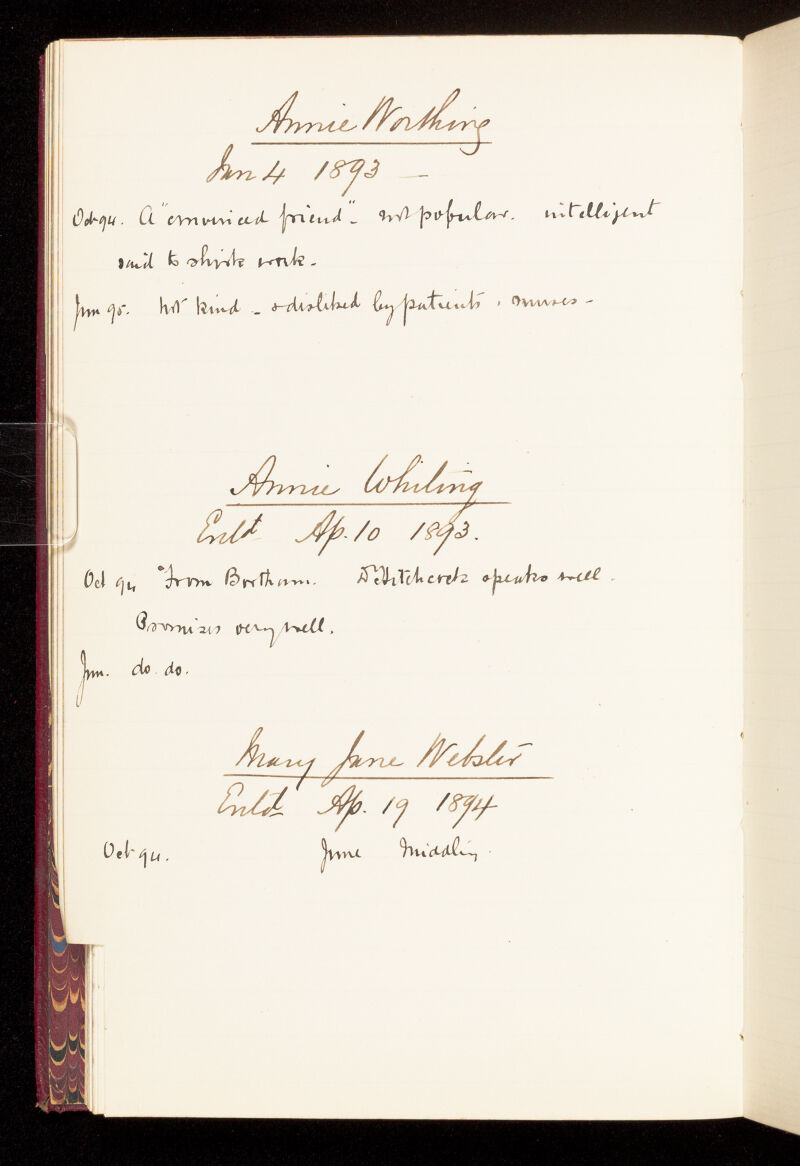 Annie Worthing
Jan 4 1893 —
Oct 94. A "convinced friend" - not popular. intelligent
said to shirk work -
June 95. Not kind - & disliked by patients & nurses -
Annie Whiting
Enld Ap. 10 1893.
Oct 94 From Bootham. Dr Hitchcock speaks well.
Promises very well.
June. do. do.
Mary Jane Webster
Enld Ap. 19 1894
Oct 94. June Middling.